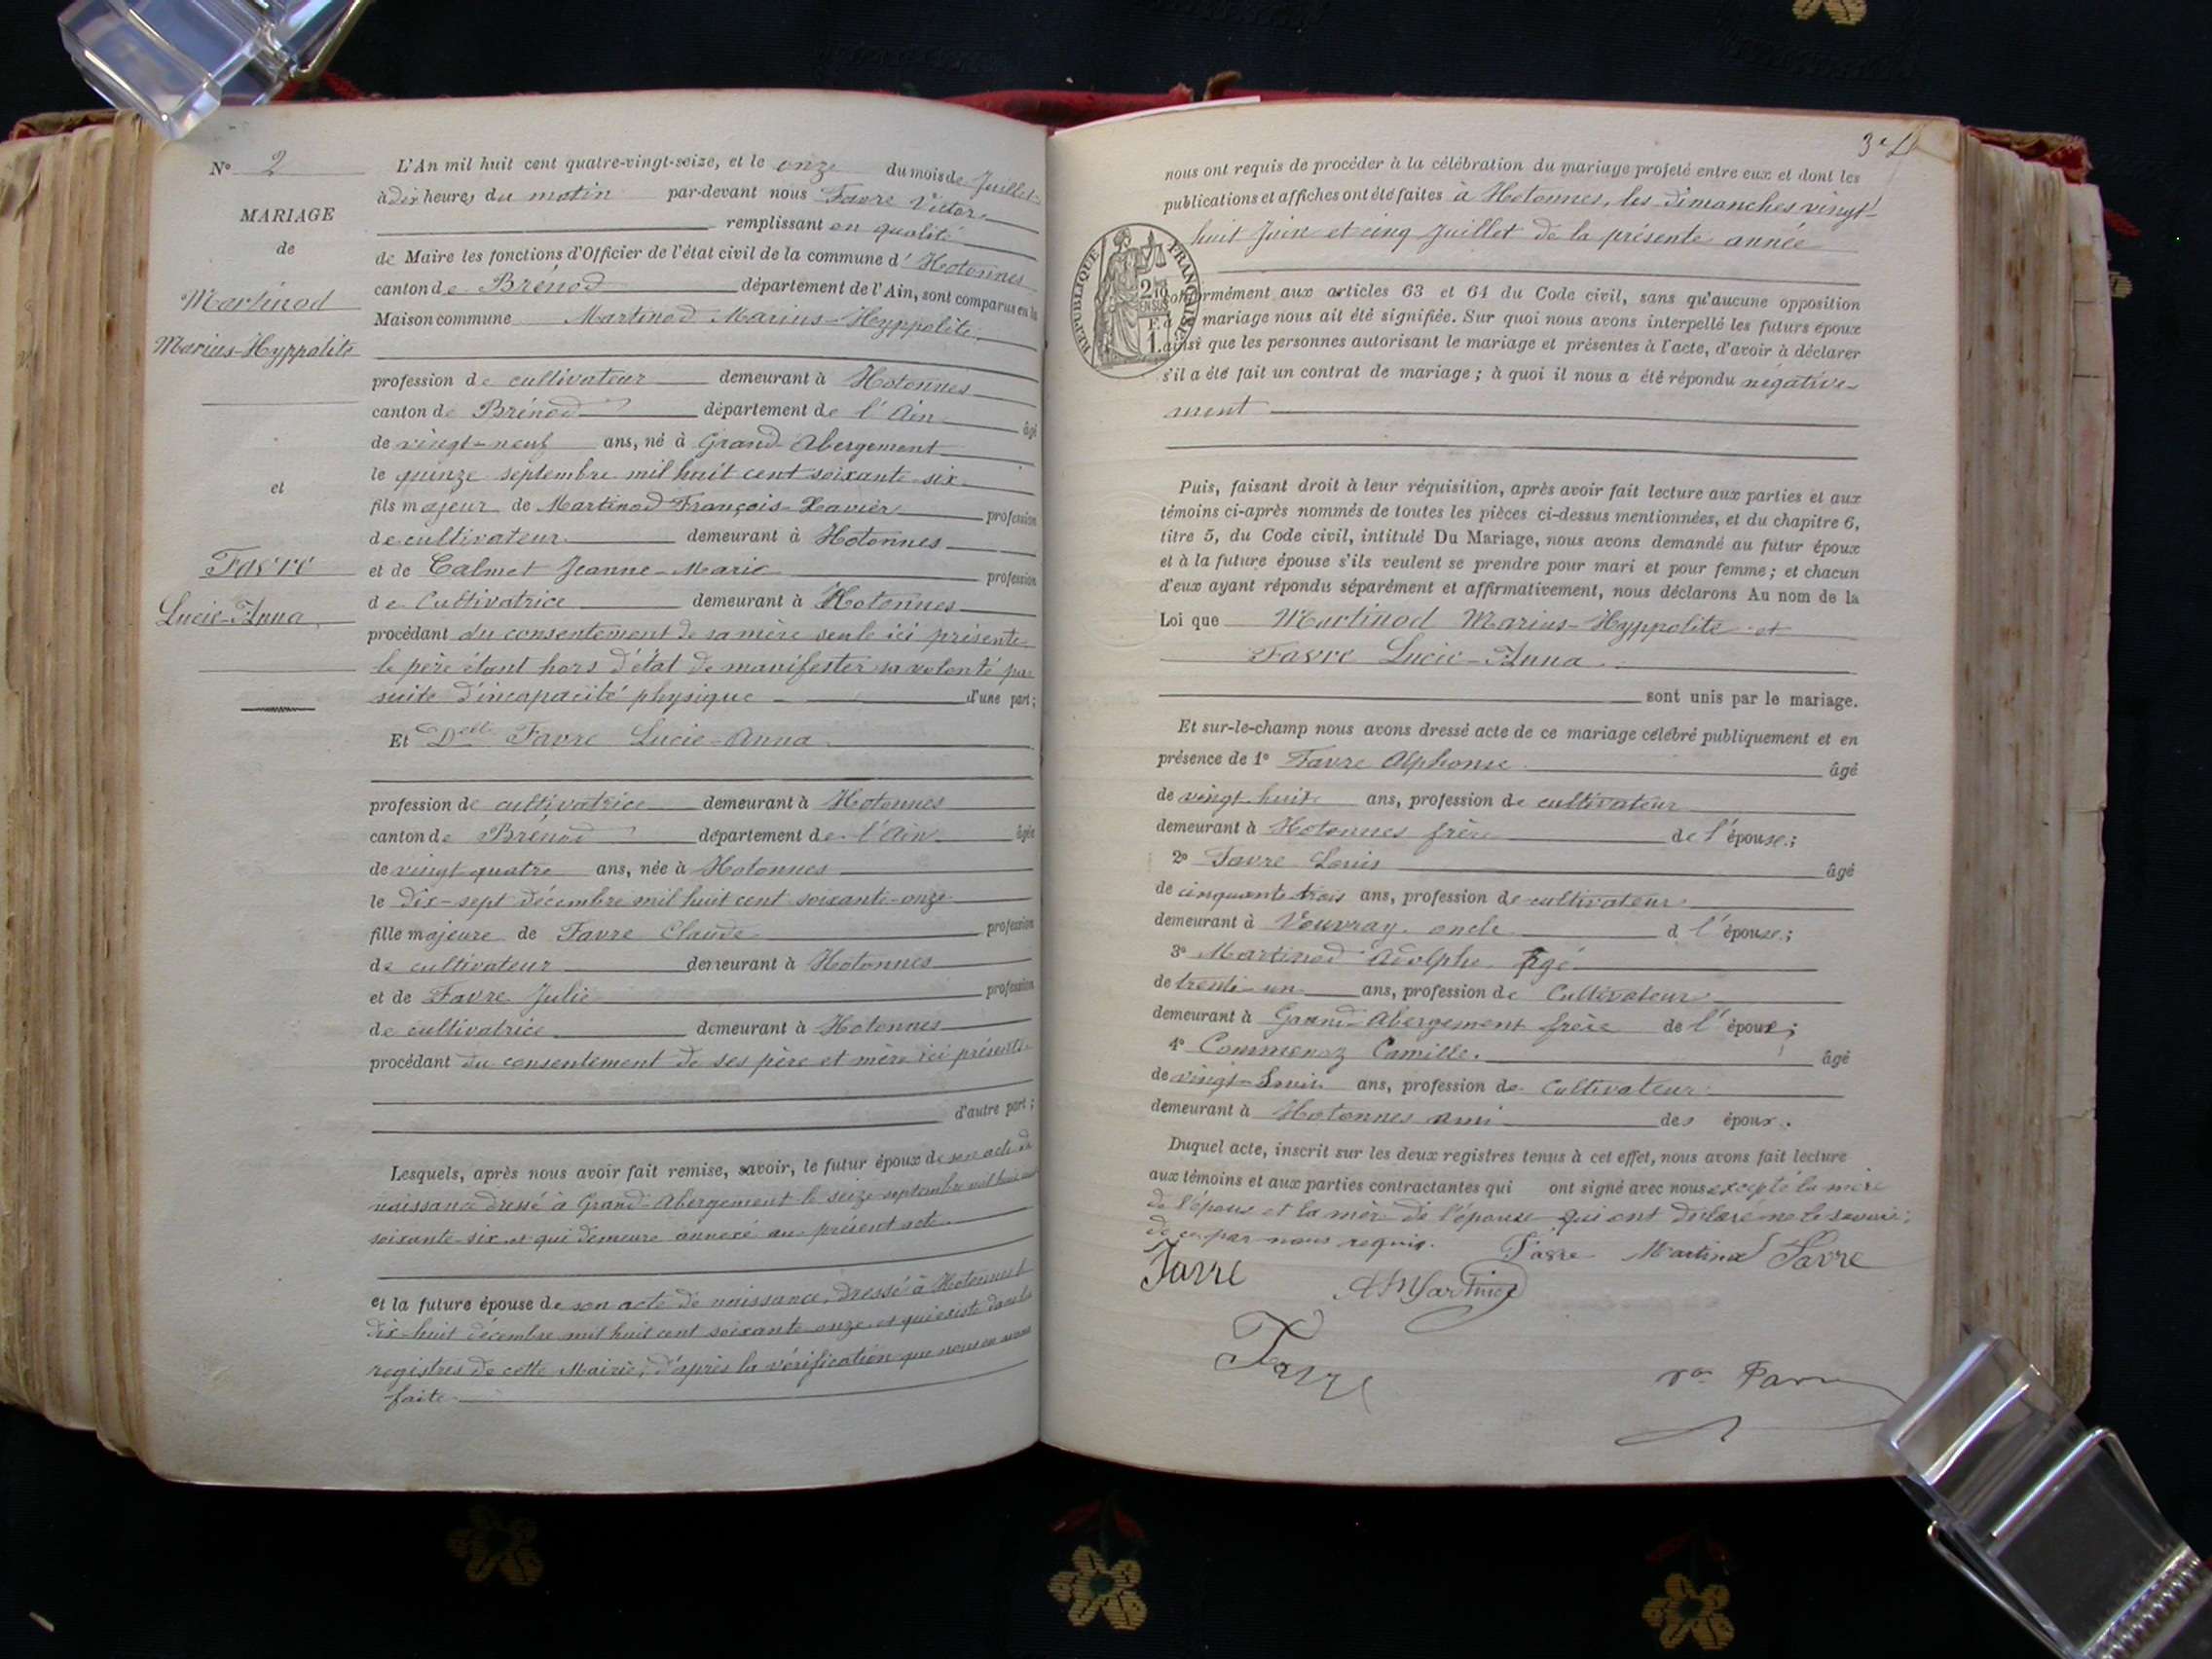 N° 2
MARIAGE
de
Martinod
Marius-Hyppolite
et
Favre
Lucie-Anna
L'An mil huit cent quatre-vingt-seize, et le onze du mois de Juillet
à dix heures du matin par-devant nous Favre Victor
remplissant en qualité
de Maire les fonctions d'Officier de l'état civil de la commune d'Hotonnes
canton de Brénod département de l'Ain, sont comparus en la
Maison commune Martinod Marius-Hyppolite
profession de cultivateur demeurant à Hotonnes
canton de Brénod département de l'Ain âgé
de vingt-neuf ans, né à Grand-Abergement
le quinze septembre mil huit cent soixante-six
fils majeur de Martinod François-Xavier profession
de cultivateur demeurant à Hotonnes
et de Calmet Jeanne-Marie profession
de Cultivatrice demeurant à Hotonnes
procédant du consentement de sa mère seule ici présente
le père étant hors d'état de manifester sa volonté par
suite d'incapacité physique d'une part;
Et Delle Favre Lucie-Anna
profession de cultivatrice demeurant à Hotonnes
canton de Brénod département de l'Ain âgée
de vingt quatre ans, née à Hotonnes
le dix-sept décembre mil huit cent soixante-onze
fille majeure de Favre Claude profession
de cultivateur demeurant à Hotonnes
et de Favre Julie profession
de cultivatrice demeurant à Hotonnes
procédant du consentement de ses père et mère ici présents
d'autre part;
Lesquels, après nous avoir fait remise, savoir, le futur époux de son acte de
naissance dressé à Grand-Abergement le seize septembre mil huit cent
soixante-six et qui demeure annexé au présent acte
et la future épouse de son acte de naissance, dressé à Hotonnes le
dix-huit décembre mil huit cent soixante-onze et qui existe dans les
registres de cette Mairie, d'après la vérification que nous en avons
faite
nous ont requis de procéder à la célébration du mariage projeté entre eux et dont les
publications et affiches ont été faites à Hotonnes, les dimanches vingt-
huit Juin et cinq Juillet de la présente année
RÉPUBLIQUE FRANÇAISE
conformément aux articles 63 et 64 du Code civil, sans qu'aucune opposition
mariage nous ait été signifiée. Sur quoi nous avons interpellé les futurs époux
ainsi que les personnes autorisant le mariage et présentes à l'acte, d'avoir à déclarer
s'il a été fait un contrat de mariage; à quoi il nous a été répondu négative-
ment
Puis, faisant droit à leur réquisition, après avoir fait lecture aux parties et aux
témoins ci-après nommés de toutes les pièces ci-dessus mentionnées, et du chapitre 6,
titre 5, du Code civil, intitulé Du Mariage, nous avons demandé au futur époux
et à la future épouse s'ils veulent se prendre pour mari et pour femme; et chacun
d'eux ayant répondu séparément et affirmativement, nous déclarons Au nom de la
Loi que Martinod Marius-Hyppolite et
Favre Lucie-Anna
sont unis par le mariage.
Et sur-le-champ nous avons dressé acte de ce mariage célébré publiquement et en
présence de 1° Favre Alphonse âgé
de vingt-huit ans, profession de cultivateur
demeurant à Hotonnes frère de l'épouse;
2° Favre Louis âgé
de cinquante trois ans, profession de cultivateur
demeurant à Vouvray oncle d l'épouse;
3° Martinod Adolphe âgé
de trente-un ans, profession de Cultivateur
demeurant à Grand-Abergement frère de l'époux;
4° Commenoz Camille. âgé
de vingt-huit ans, profession de Cultivateur
demeurant à Hotonnes ami des époux.
Duquel acte, inscrit sur les deux registres tenus à cet effet, nous avons fait lecture
aux témoins et aux parties contractantes qui ont signé avec nous excepté la mère
de l'époux et la mère de l'épouse qui ont déclaré ne le savoir;
de ce par nous requis. Favre Martinod Favre
Favre A Martinod
Favre
Vor Favre